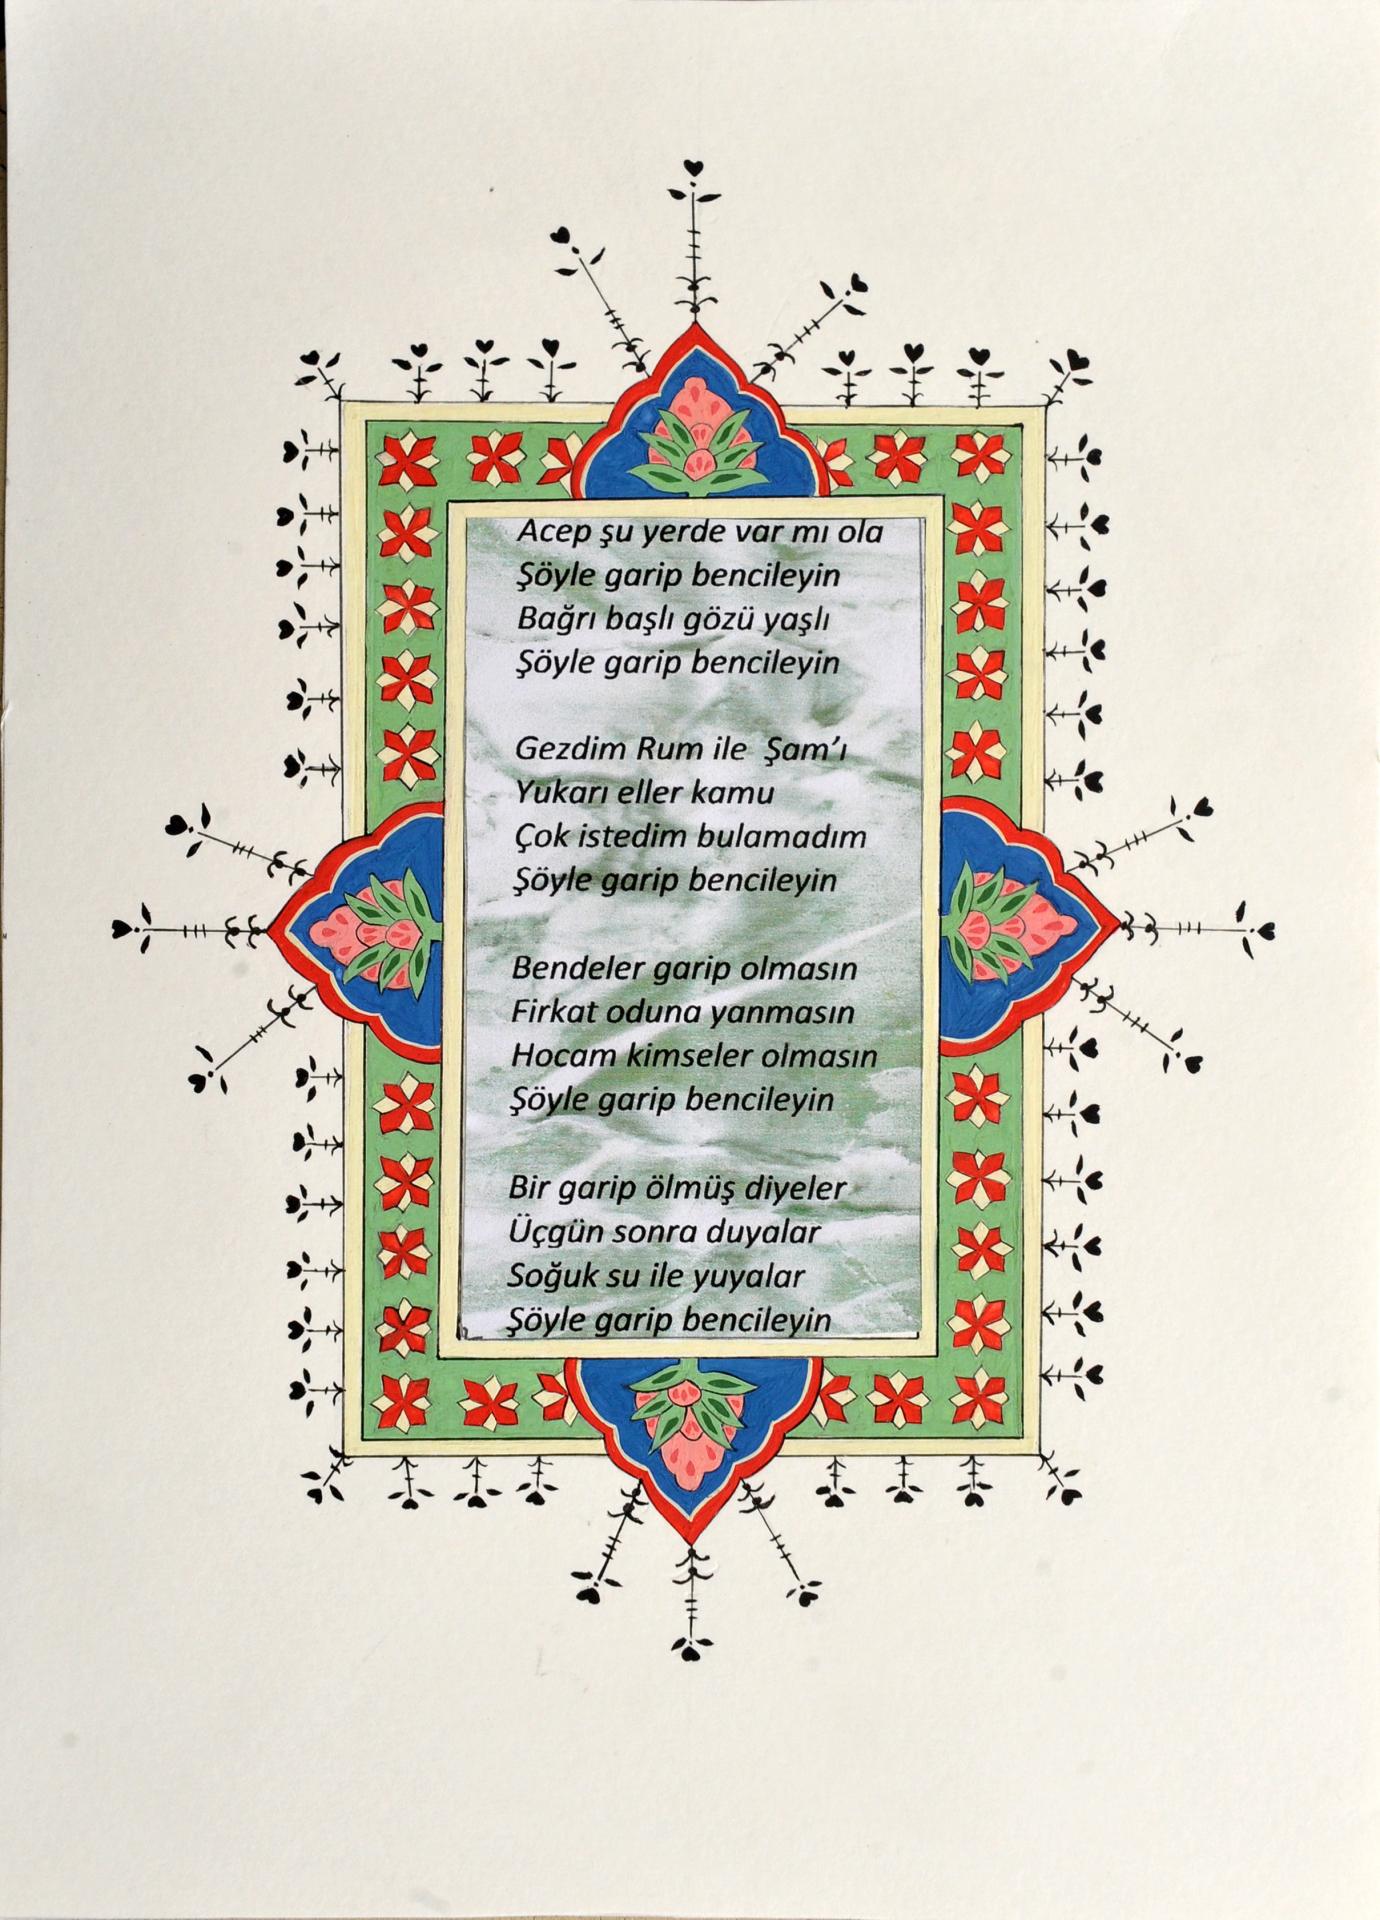 Acep şu yerde var mı ola
Şöyle garip bencileyin
Bağrı başlı gözü yaşlı
Şöyle garip bencileyin
Gezdim Rum ile Şam’ı
Yukarı eller kamu
Çok istedim bulamadım
Şöyle garip bencileyin
Bendeler garip olmasın
Firkat oduna yanmasın
Hocam kimseler olmasın
Şöyle garip bencileyin
Bir garip ölmüş diyeler
Üçgün sonra duyalar
Soğuk su ile yuyalar
Şöyle garip bencileyin